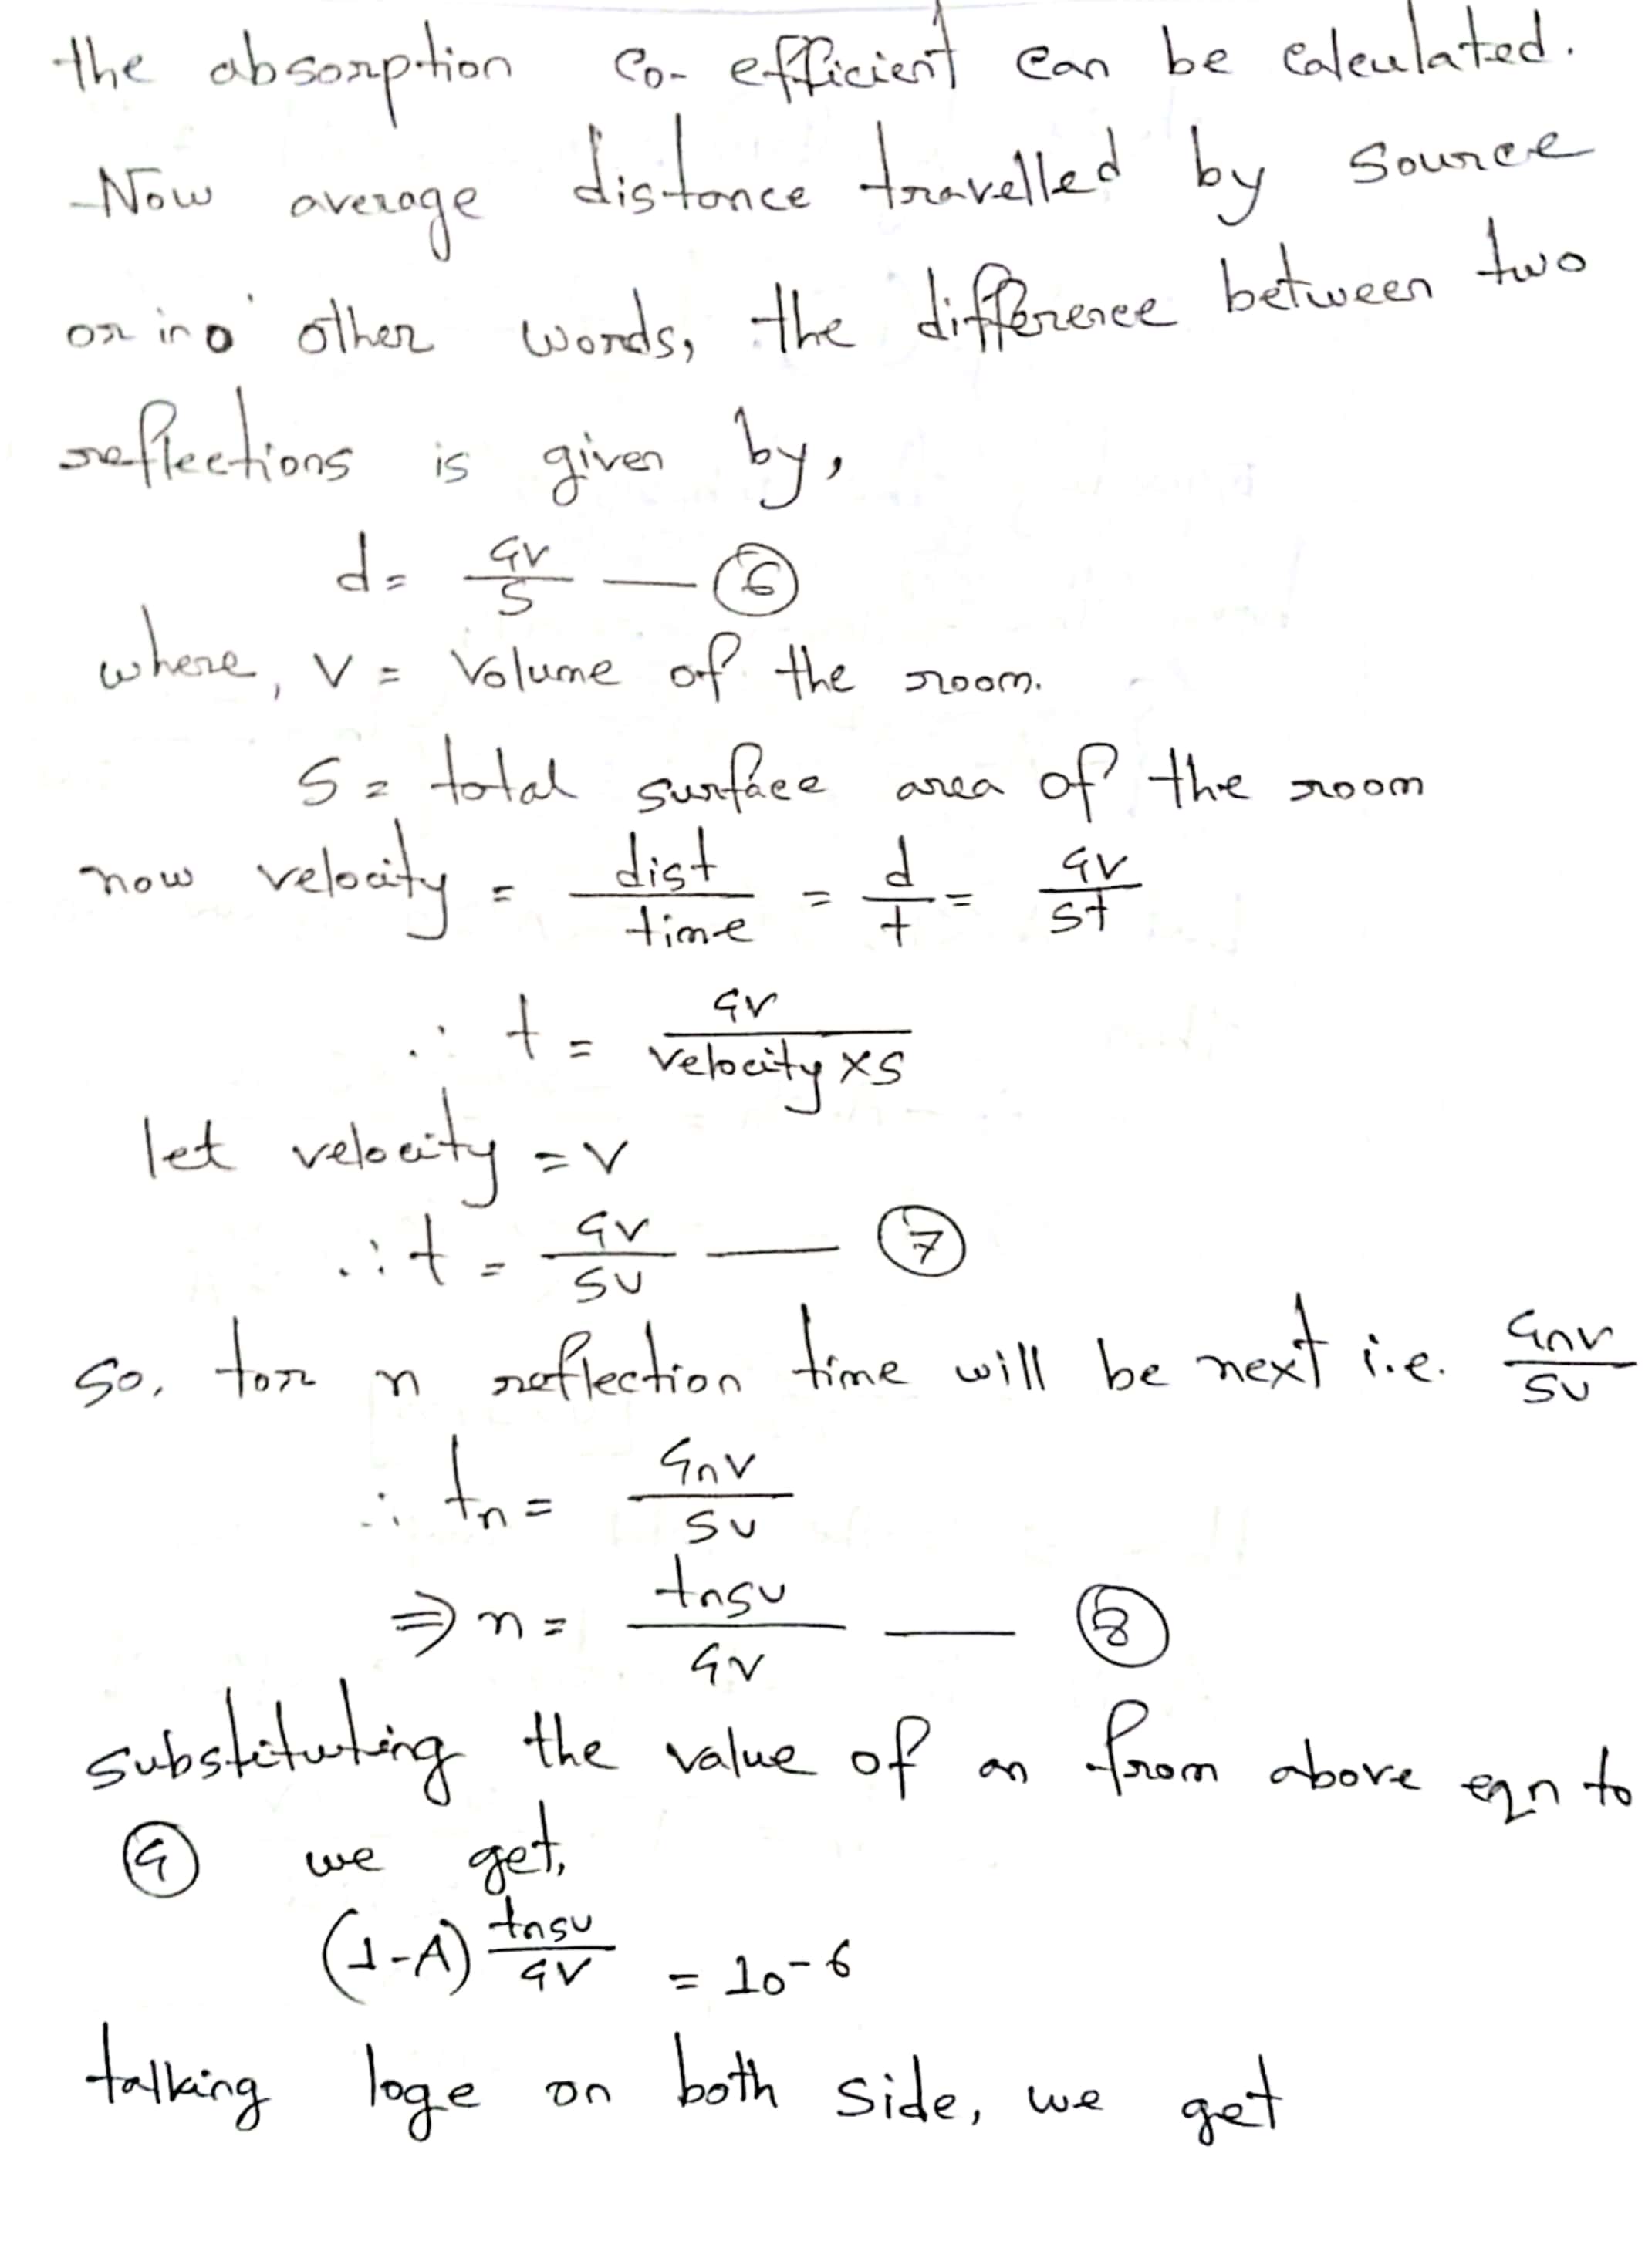 the absorption co-efficient can be calculated.
Now average distance travelled by source
or in o other words, the difference between two
reflections is given by,
d = 4V/S — ⑥
where, V = Volume of the room.
S = total surface area of the room
now velocity = dist/time = d/t = 4V/St
∴ t = 4V/velocity × S
let velocity = v
∴ t = 4V/Sv — ⑦
So, for n reflection time will be next i.e. 4nV/Sv
∴ tn = 4nV/Sv
⇒ n = tnSv/4V — ⑧
substituting the value of an from above eqn to
④ we get,
(1-A) tnSv/4V = 10-6
talking loge on both side, we get